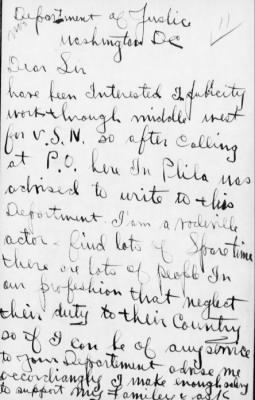 Department of Justice
11
Washington Dc
Dear Sir
have been Interested In publicity
work through middle west
for U.S.N. so after calling
at P.O. here In Phila was
advised to write to this
Department. I'am a vodeville
actor - find lots of Spare time
there are lots of people In
our profeshion that neglect
their duty to their Country
so if I can be of any service
to your Departement advise me
accordiangly I make enough salery
to support my Familey & ask